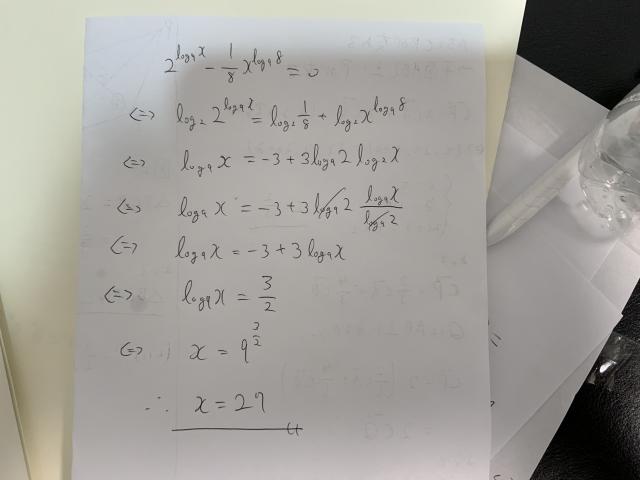 2^{log_9 x} - \frac{1}{8} x^{log_9 8} = 0
⟺ log_2 2^{log_9 x} = log_2 \frac{1}{8} + log_2 x^{log_9 8}
⟺ log_9 x = -3 + 3 log_9 2 log_2 x
⟺ log_9 x = -3 + 3 log_9 2 \frac{log_9 x}{log_9 2}
⟺ log_9 x = -3 + 3 log_9 x
⟺ log_9 x = \frac{3}{2}
⟺ x = 9^{\frac{3}{2}}
∴ x = 27